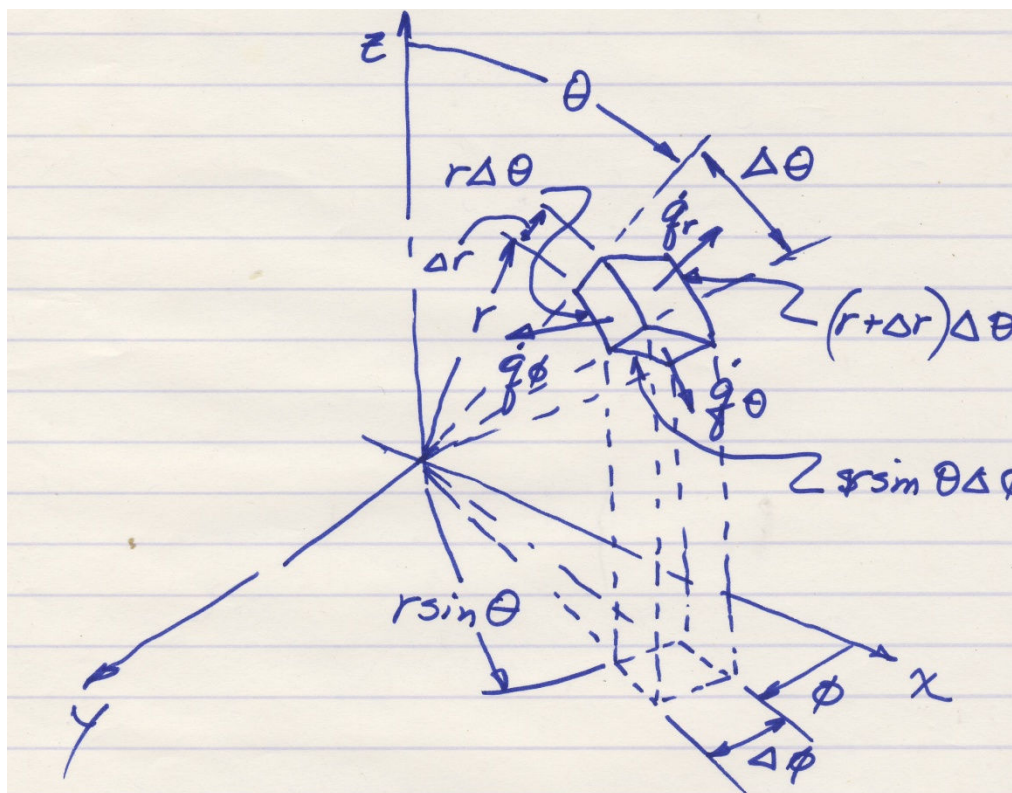 z
θ
Δθ
rΔθ
q̇r
Δr
r
(r+Δr)Δθ
q̇ϕ
q̇θ
rsin θΔϕ
rsinθ
x
ϕ
y
Δϕ